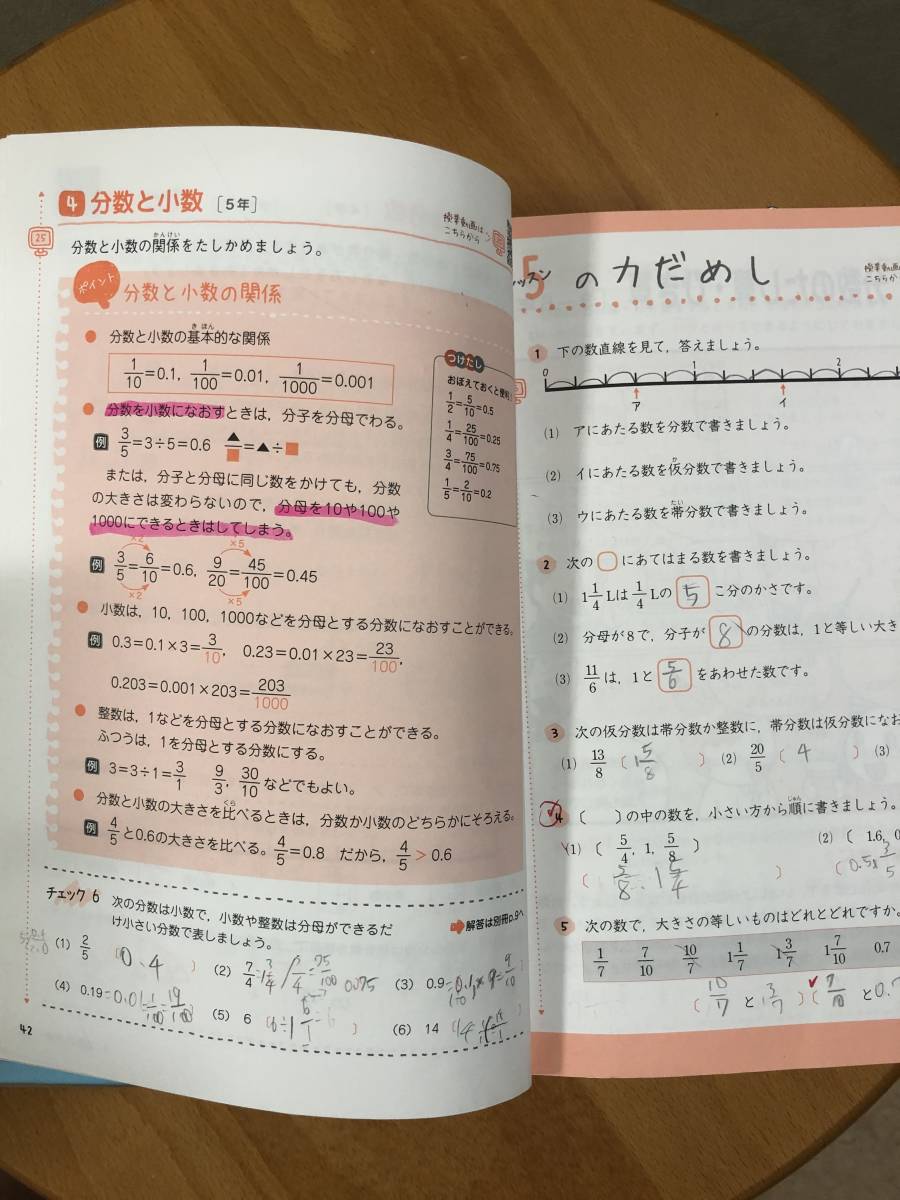 4 分数と小数 [5年]
授業動画は
こちらから
25
分数と小数の関係をたしかめましょう。
かんけい
ポイント
分数と小数の関係
分数と小数の基本的な関係
きほん
1/10=0.1, 1/100=0.01, 1/1000=0.001
分数を小数になおすときは，分子を分母でわる。
例 3/5=3÷5=0.6 ▲/■=▲÷■
または，分子と分母に同じ数をかけても，分数
の大きさは変わらないので，分母を10や100や
1000にできるときはしてしまう。
×2 ×5
例 3/5=6/10=0.6, 9/20=45/100=0.45
×2 ×5
小数は，10，100，1000などを分母とする分数になおすことができる。
例 0.3=0.1×3=3/10, 0.23=0.01×23=23/100,
0.203=0.001×203=203/1000
整数は，1などを分母とする分数になおすことができる。
ふつうは，1を分母とする分数にする。
例 3=3÷1=3/1 9/3, 30/10 などでもよい。
分数と小数の大きさを比べるときは，分数か小数のどちらかにそろえる。
くら
例 4/5と0.6の大きさを比べる。4/5=0.8 だから，4/5 > 0.6
つけたし
おぼえておくと便利
1/2=5/10=0.5
1/4=25/100=0.25
3/4=75/100=0.75
1/5=2/10=0.2
チェック 6 次の分数は小数で，小数や整数は分母ができるだ
け小さい分数で表しましょう。
解答は別冊p.9へ
(1) 2/5 (0.4)
(2) 7/4
(3) 0.9
(4) 0.19
(5) 6
(6) 14
42
5
の力だめし
授業動画
こちらか
1 下の数直線を見て，答えましょう。
0 1 2
ア イ
(1) アにあたる数を分数で書きましょう。
(2) イにあたる数を仮分数で書きましょう。
か
(3) ウにあたる数を帯分数で書きましょう。
たい
2 次の□にあてはまる数を書きましょう。
(1) 1 1/4 Lは 1/4 Lの 5 こ分のかさです。
(2) 分母が8で，分子が 8 の分数は，1と等しい大き
(3) 11/6 は，1と 5/6 をあわせた数です。
3 次の仮分数は帯分数か整数に，帯分数は仮分数になお
(1) 13/8 (1 5/8) (2) 20/5 (4) (3)
4 ( )の中の数を，小さい方から順に書きましょう。
じゅん
(1) (5/4, 1, 5/8) (2) (1.6, 0
(5/8, 1, 5/4)
5 次の数で，大きさの等しいものはどれとどれですか。
1/7 7/10 10/7 1 1/7 1 3/7 1 7/10 0.7
(10/7 と 1 3/7) (7/10 と 0.7